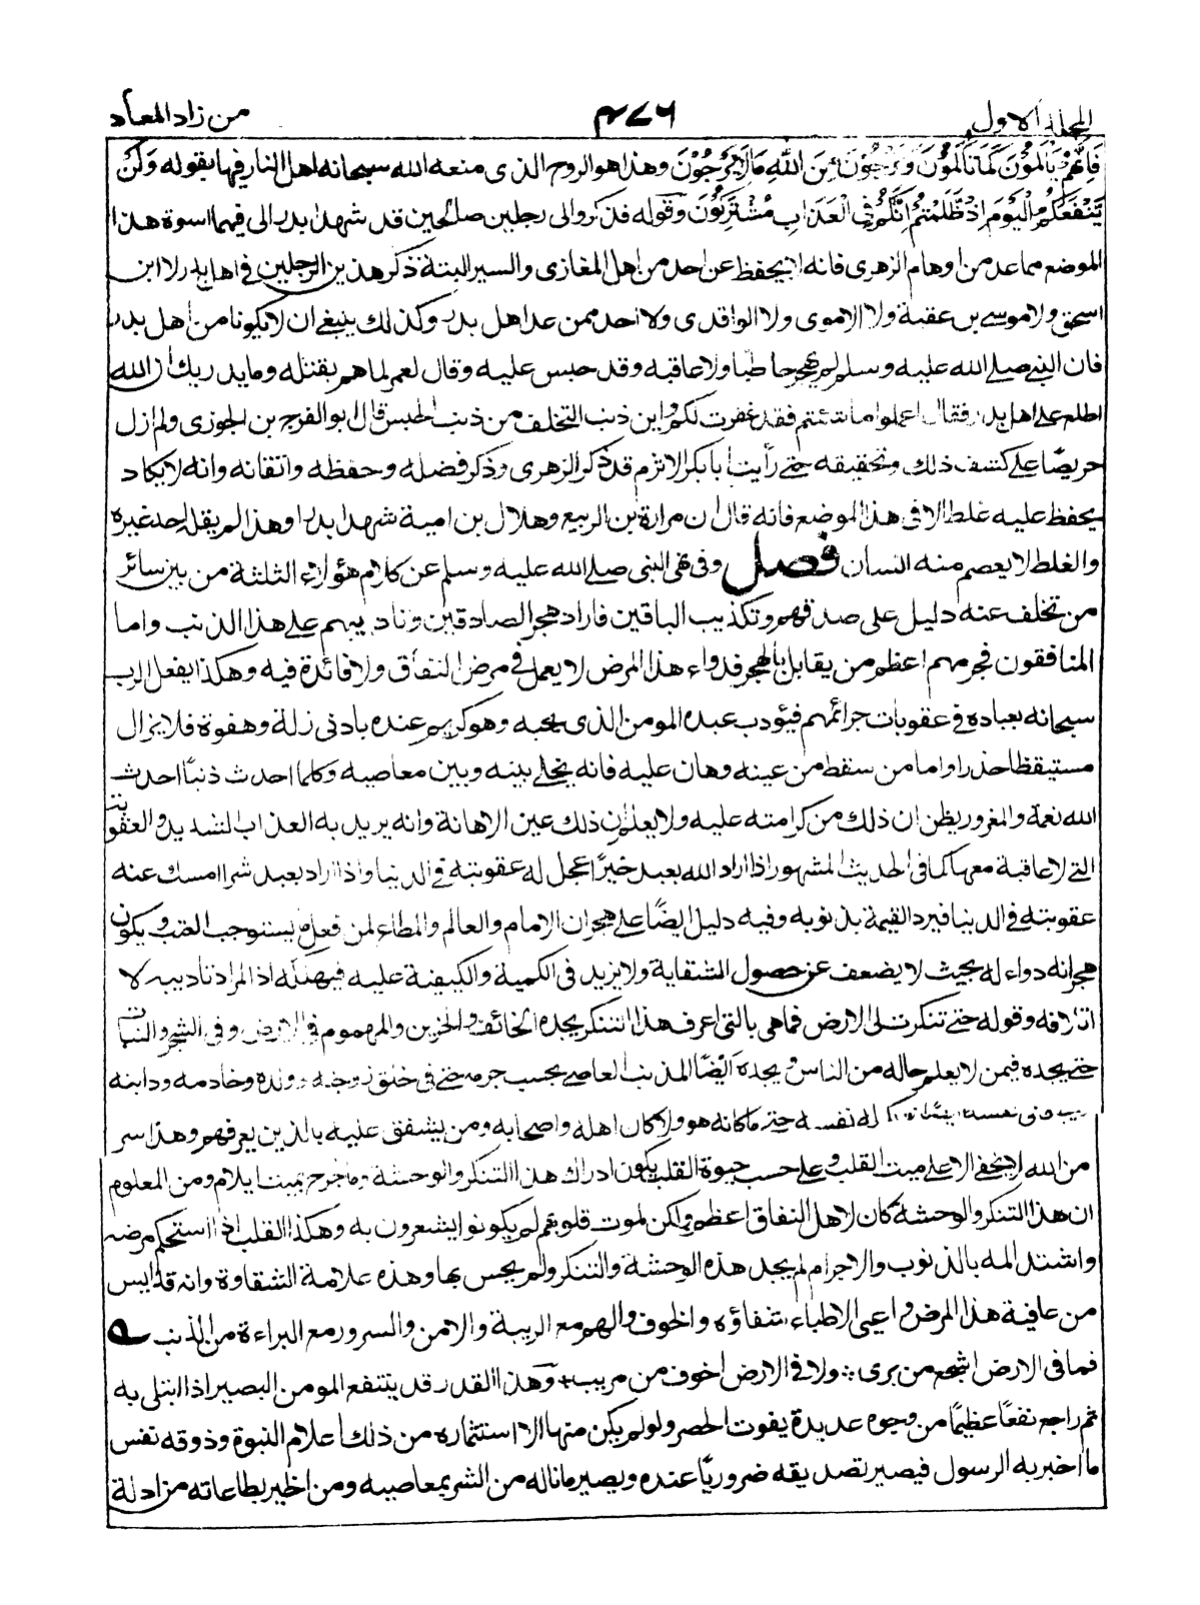 المجلد الاول
٤٧٦
من زاد المعاد
فَاِنَّهُمْ يَأْلَمُوْنَ كَمَا تَأْلَمُوْنَ وَتَرْجُوْنَ مِنَ اللّٰهِ مَا لَا يَرْجُوْنَ وهذا هو الروح الذى منعه الله سبحانه اهل النار فيها بقوله وَلَنْ
يَّنْفَعَكُمُ الْيَوْمَ اِذْ ظَّلَمْتُمْ اَنَّكُمْ فِى الْعَذَابِ مُشْتَرِكُوْنَ وقوله فذكروا لى رجلين صالحين قد شهدا بدرا لى فيهما اسوة هذا
الموضع مما عد من اوهام الزهرى فانه لا يحفظ عن احد من اهل المغازى والسير البتة ذكر هذين الرجلين فى اهل بدر لا ابن
اسحق ولا موسے بن عقبة ولا الاموى ولا الواقدى ولا احد ممن عد اهل بدر وكذلك ينبغے ان لا يكونا من اهل بدر
فان النبے صلے الله عليه وسلم لم يهجر حاطبا ولا عاقبه وقد حبس عليه وقال لعمر لما هم بقتله وما يدريك ان الله
اطلع علے اهل بدر فقال اعملوا ما شئتم فقد غفرت لكم واين ذنب التخلف من ذنب الحبس قال ابو الفرج بن الجوزى ولم ازل
حريصًا علے كشف ذلك وتحقيقه حتے رأيت ابا بكر الاثرم قد ذكر الزهرى وذكر فضله وحفظه واتقانه وانه لا يكاد
يحفظ عليه غلط الا فى هذا الموضع فانه قال ان مرارة بن الربيع وهلال بن امية شهدا بدرا وهذا لم يقله احد غيره
والغلط لا يعصم منه انسان فصل وفى نهى النبى صلے الله عليه وسلم عن كلام هؤلاء الثلثة من بين سائر
من تخلف عنه دليل على صدقهم وتكذيب الباقين فاراد هجر الصادقين وتاديبهم علے هذا الذنب واما
المنافقون فجرمهم اعظم من يقابل بالهجر فدواء هذا المرض لا يعمل فى مرض النفاق ولا فائدة فيه وهكذا يفعل الرب
سبحانه بعباده فى عقوبات جرائمهم فيؤدب عبده المومن الذى يحبه وهو كريم عنده بادنى زلة وهفوة فلا يزال
مستيقظا حذرا واما من سقط من عينه وهان عليه فانه يخلے بينه وبين معاصيه وكلما احدث ذنبًا احدث
الله نعمة والمغرور يظن ان ذلك من كرامته عليه ولا يعلم ان ذلك عين الاهانة وانه يريد به العذاب الشديد والعقوبة
التے لا عاقبة معها كما فى الحديث المشهور اذا اراد الله بعبد خيرًا عجل له عقوبته فى الدنيا واذا اراد بعبد شرا امسك عنه
عقوبته فى الدنيا فيرد القيمة بذنوبه وفيه دليل ايضًا علے هجران الامام والعالم والمطاع لمن فعل ما يستوجب العتب ويكون
هجرانه دواء له بحيث لا يضعف عن حصول الشفاء به ولا يزيد فى الكمية والكيفية عليه فيهلكه اذ المراد تاديبه لا
اتلافه وقوله حتے تنكرت لى الارض فما هى بالتى اعرف هذا التنكر يجده الخائف والحزين والمهموم فى الارض وفى الشجر والنبات
حتے يجده فيمن لا يعلم حاله من الناس ويجده اَيضًا المذنب العاصے بحسب جرمه حتے فى خلق زوجته وولده وخادمه ودابته
ويجده فى نفسه ايضًا فتتنكر له نفسه حتے ما كانه هو ولا كان اهله واصحابه ومن يشفق عليه بالذين يعرفهم وهذا سر
من الله لا يخفے الا علے ميت القلب وعلے حسب حيوة القلب يكون ادراك هذا التنكر والوحشة وما لجرح بميت ايلام ومن المعلوم
ان هذا التنكر والوحشة كان لاهل النفاق اعظم ولكن لموت قلوبهم لم يكونوا يشعرون به وهكذا القلب اذا استحكم مرضه
واشتد المه بالذنوب والاجرام لم يجد هذه الوحشة والتنكر ولم يحس بها وهذه علامة الشقاوة وانه قد ايس
من عافية هذا المرض واعيى الاطباء شفاؤه والخوف والهم مع الريبة والامن والسرور مع البراءة من الذنب ؎
فما فى الارض اشجع من برى ÷ ولا فى الارض اخوف من مريب + وهذا القدر قد ينتفع المومن البصير اذا ابتلى به
ثم راجع نفعًا عظيمًا من وجوه عديدة يفوت الحصر ولو لم يكن منها الا استثماره من ذلك اعلام النبوة وذوقه نفس
ما اخبر به الرسول فيصير تصديقه ضروريًّا عنده ويصير ما ناله من الشر بمعاصيه ومن الخير بطاعاته من ادلة